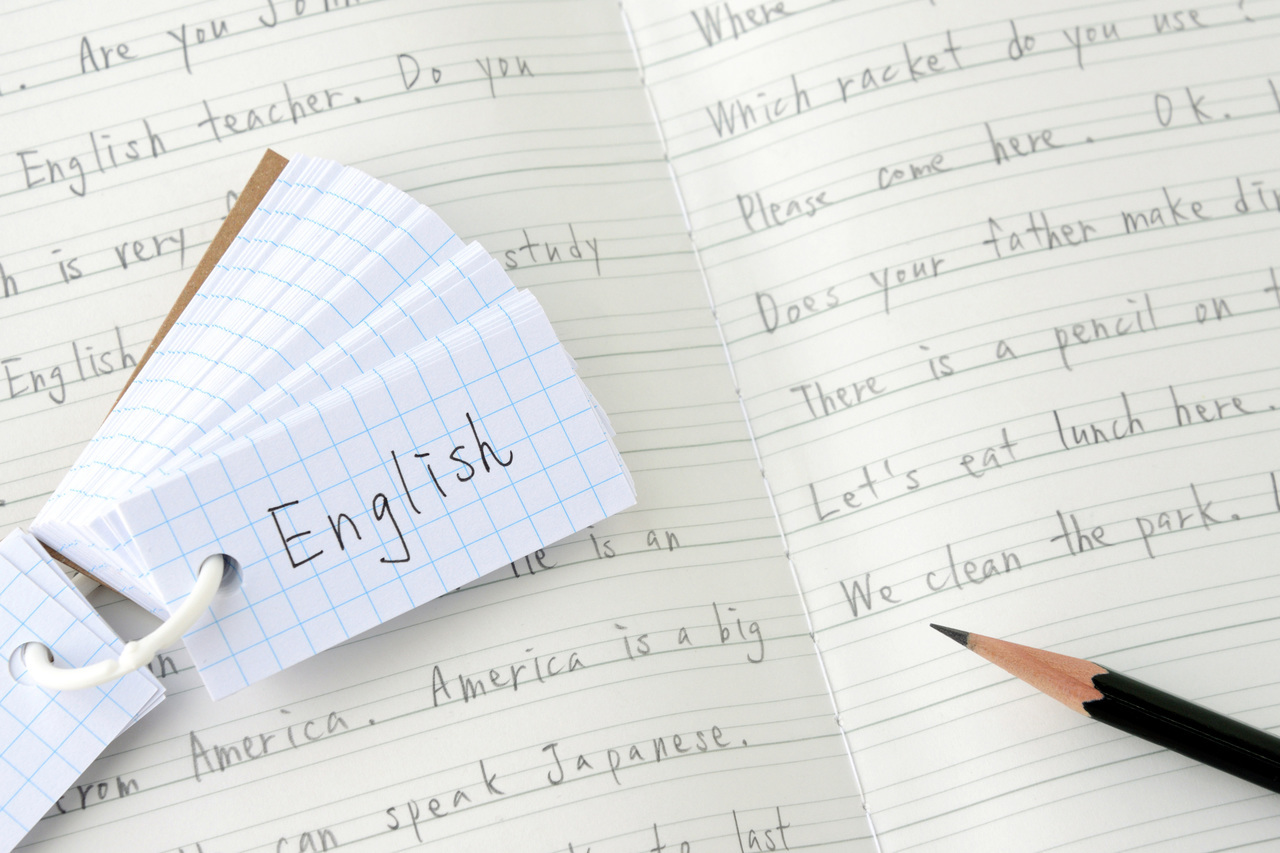 . Are you
English teacher. Do you
is very
study
English
English
is an
America is a big
from America.
can speak Japanese.
to last
Where
Which racket do you use?
Please come here. Ok.
Does your father make
There is a pencil on
Let's eat lunch here.
We clean the park.